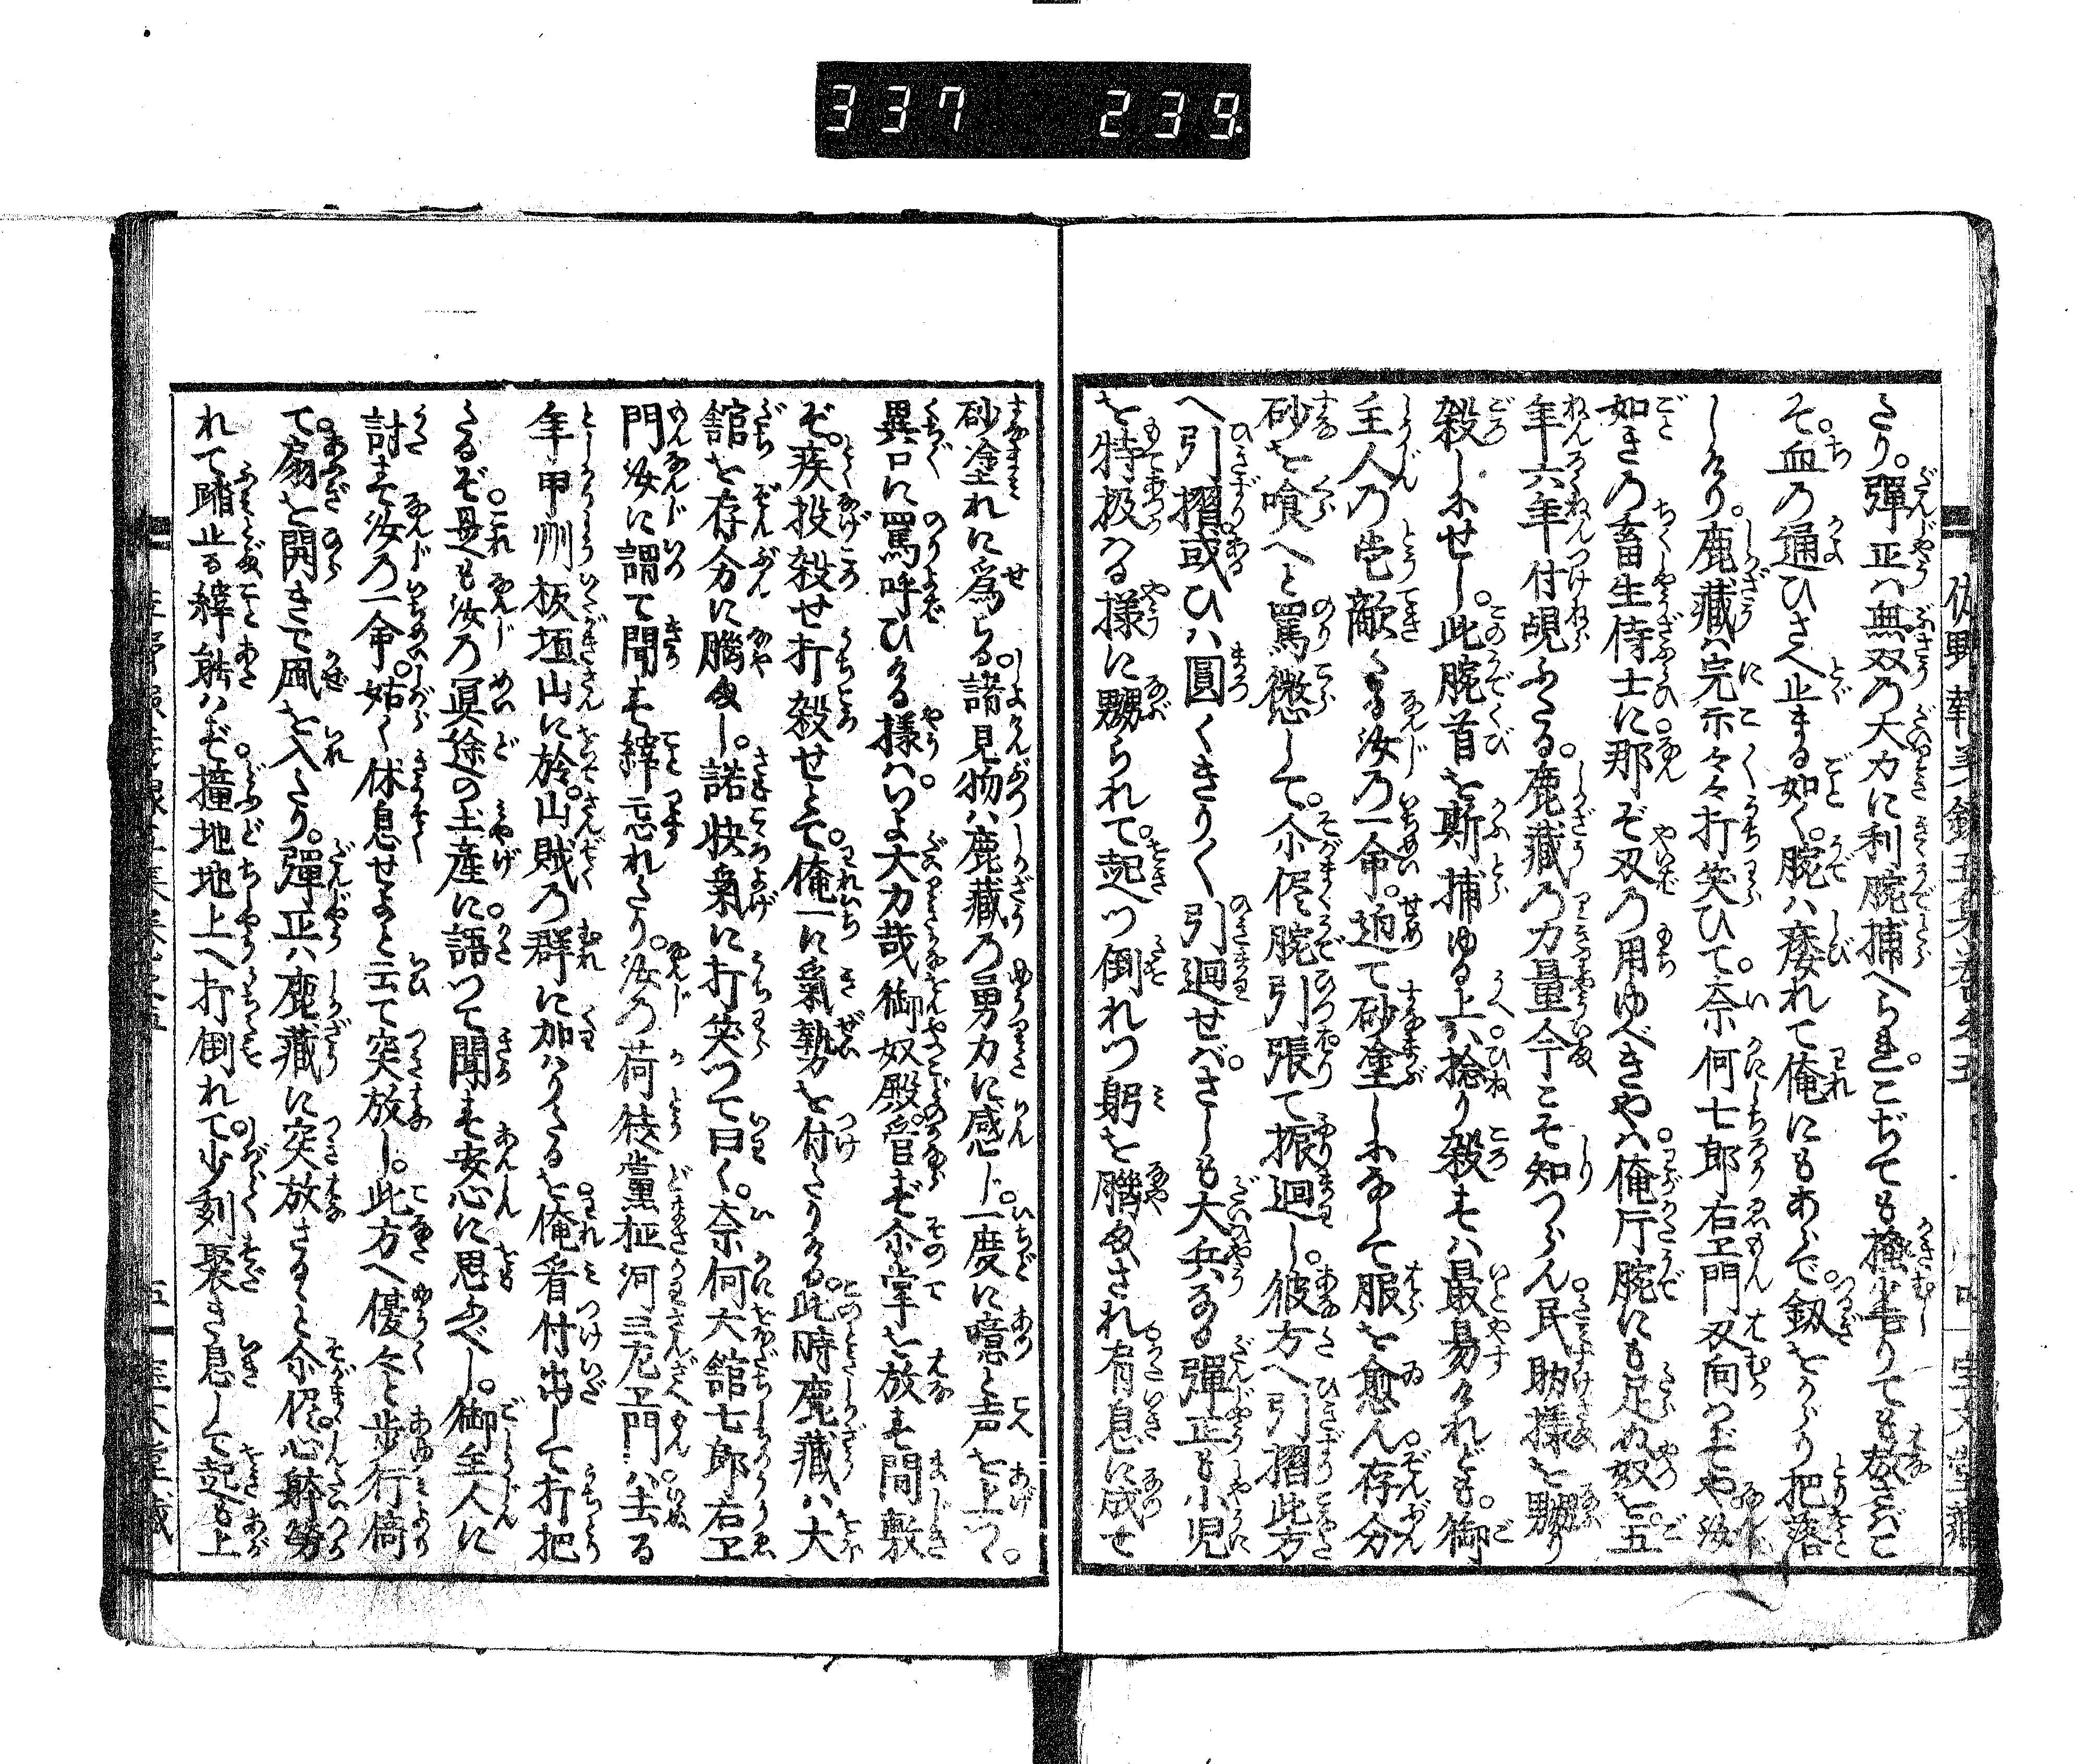 337 239
さり。彈正ハ無双の大力に利腕捕へられ。こぢても掻毟りても放さバこ
そ。血の通ひさへ止まる如く。腕ハ痿れて俺にもあらで。釼をからり把落
しけり。鹿藏ハ完尓々々打笑ひて。奈何七郎右ヱ門刄向ハずや汝
如きの畜生侍士に那ぞ刄の用ゆべきや。ハ俺片腕にも足ぬ奴を。五
年六年付覘ふたる。鹿藏の力量今こそ知つらん民助様を嬲り
殺しにせし。此腕首を斯捕ゆる上ハ。捻り殺すハ最易けれども。御
主人の當敵たる汝の一命。迫て砂塗しになして服を愈ん。存分
砂を喰へと罵懲して。尓侭腕引張て振廻し。彼方へ引摺此方
へ引摺。或ひハ圓くきりく引廻せバ。さしも大兵なる彈正も小児
を持扱へる様に嬲られて。起つ倒れつ躬を腦まされ。肩息に成せ
砂塗れに爲らる。諸見物ハ鹿藏の勇力に感じ。一度に噫と声を上つゝ。
異口に罵呼ひける様ハ。いよ大力哉御奴殿。音ぞ尓掌を放す間敷
ぞ。疾投殺せ打殺せとて。俺一に氣勢を付たりける。此時鹿藏ハ大
舘を存分に腦まし。諾快氣に打笑つて曰く。奈何大舘七郎右ヱ
門汝に謂て聞す縡忘れたり。汝の荷徒黨柾河三左ヱ門ハ去る
年甲州板垣山に於。山賊の群に加ハりたるを。俺看付出して打把
たるぞ。是も汝の冥途の土産に語つて聞す安心に思ふべし。御主人に
討す汝の一命。姑く休息せよと云て突放し。此方へ優々と歩行倚
て。扇を開きて風を入たり。彈正ハ鹿藏に突放さるゝと尓侭。心躰勞
れて踏止る縡能ハず。撞地地上へ打倒れて。少刻聚き息して起も上